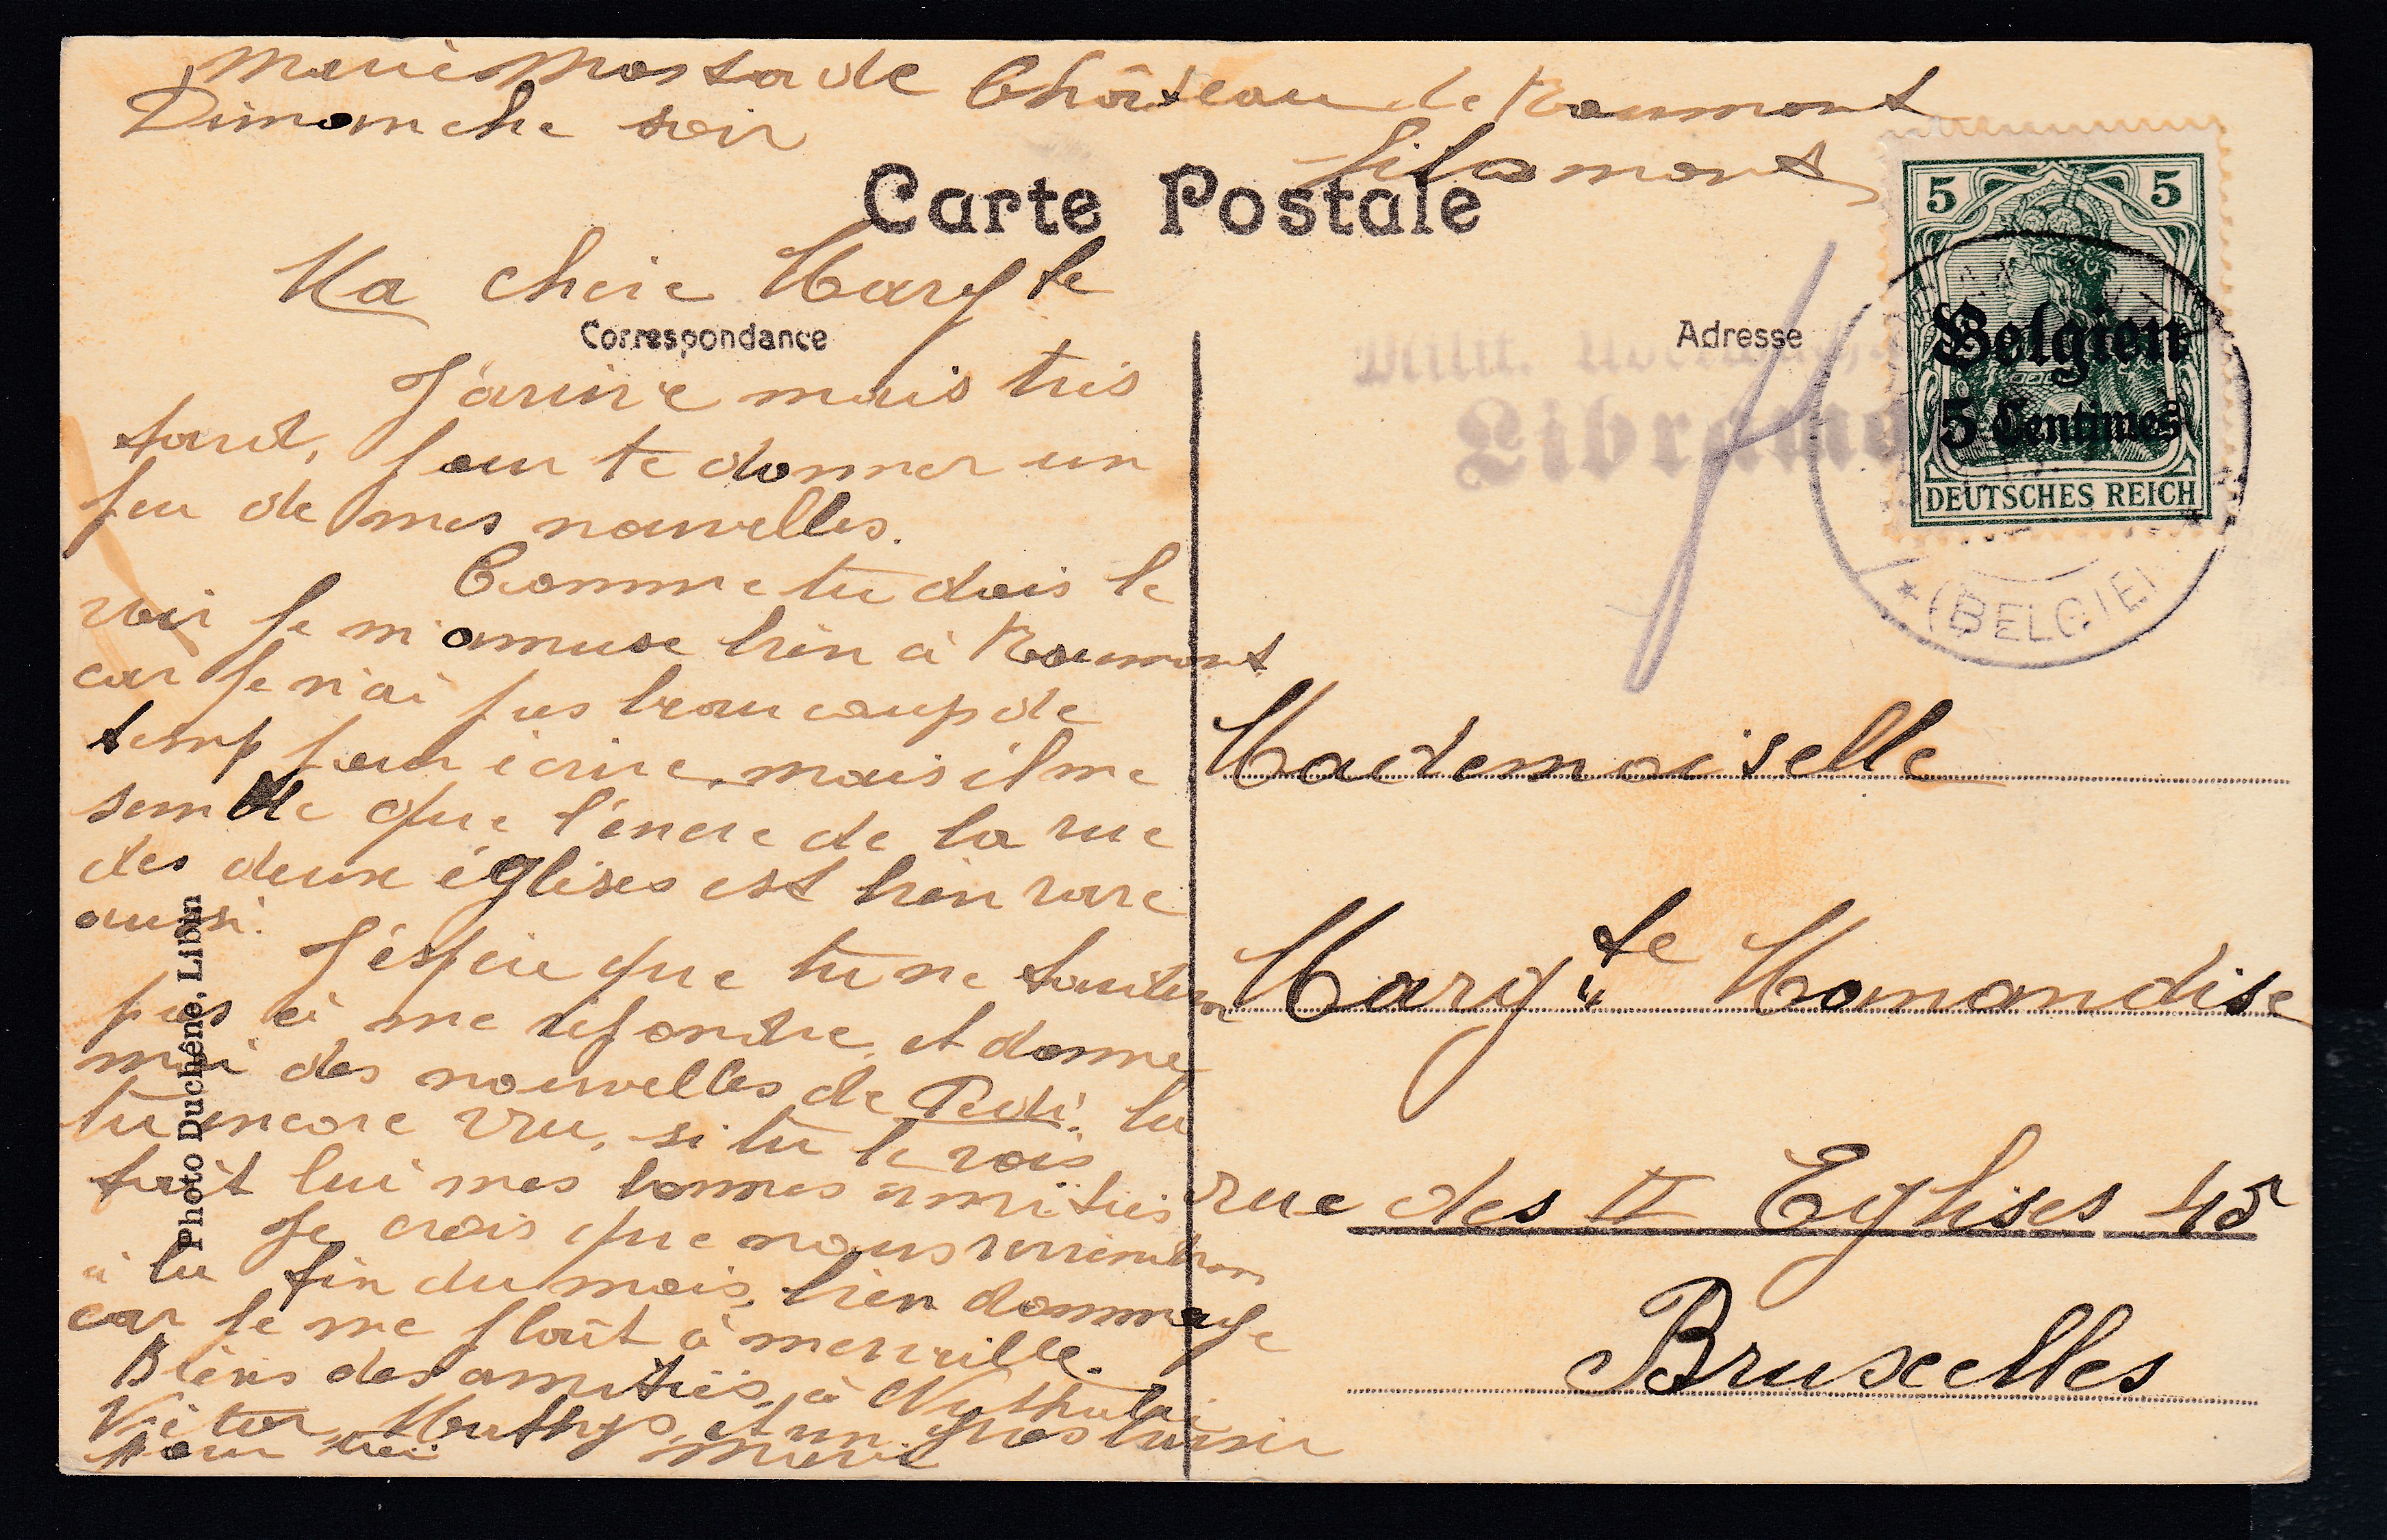 Marie Château de Roumont
Dimanche soir
Carte Postale
Ma chère Margte
Correspondance
J'arrive mais très
tard, pour te donner un
peu de mes nouvelles.
Comme tu dois le
voir je m'amuse bien à Roumont
car je n'ai pas beaucoup de
temp pour écrire, mais il me
semble que l'encre de la rue
des deux églises est bien rare
aussi.
J'éspère que tu ne
pas à me répondre, et donne
moi des nouvelles de Pedi. la
tu encore vu, si tu le vois
fait lui mes bonnes amitiés
Je crois que nous
à la fin du mois, bien dommage
car je me plaît à merveille.
Biens des amitiés, à
Victor, Mathys, et un gros baisir
pour toi Marie
Photo Duchêne, Libin
Adresse
Milit.
Libramo
5 5
Belgien
5 Centimes
DEUTSCHES REICH
* (BELGIE)
Mademoiselle
Margte Mamandise
rue des II Eglises 45
Bruxelles